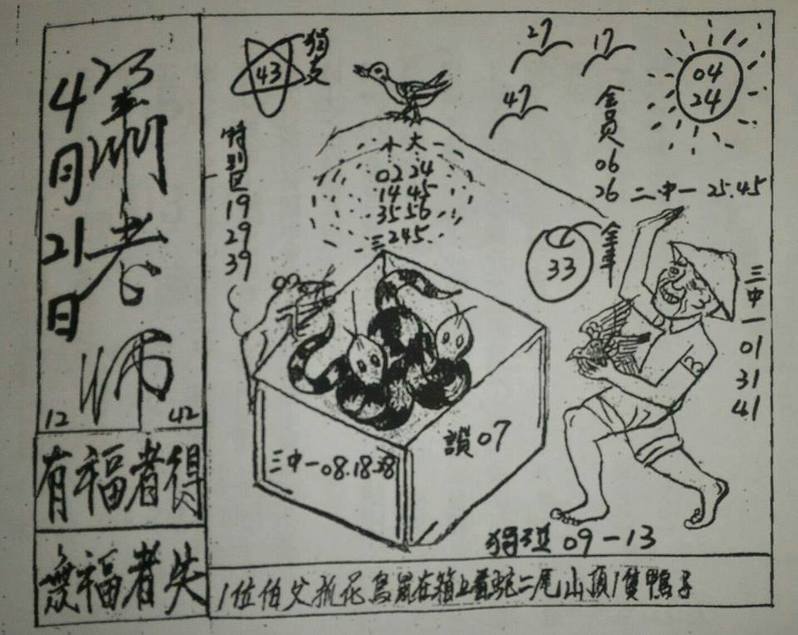 4月21日
老师
12 42
有福者得
無福者失
43
獨支
特别区
19
29
39
27
17
47
04
24
会員
06
26
二中一 25.45
小 大
02 24
14 45
35 56
三 245
33
全車
三中一
01
31
41
三中一 08.18.38
07
09-13
1位伯父抓花鳥鼠在箱上看蛇二尾山頂1隻鴨子